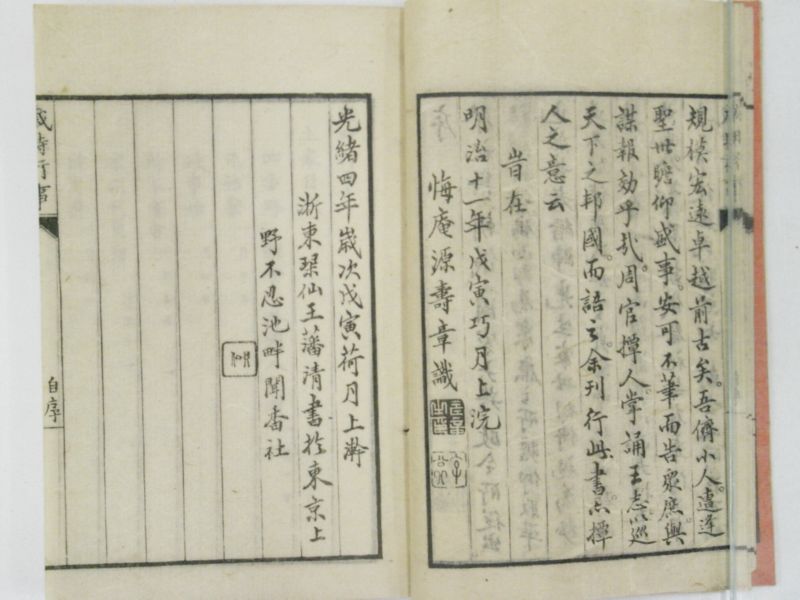 規模宏遠卓越前古矣。吾儕小人。遭逢
聖世。瞻仰盛事。安可不筆而告衆庶。與
謀報効乎哉。周官撢人。掌誦王志。以巡
天下之邦國。而語之。余刊行此書。亦撢
人之意云
旹在
明治十一年戊寅巧月上浣
悔庵源壽章識
光緒四年嵗次戊寅荷月上澣
浙東琹仙王藩清書於東京上
野不忍池畔聞香社
歳時行事
自序